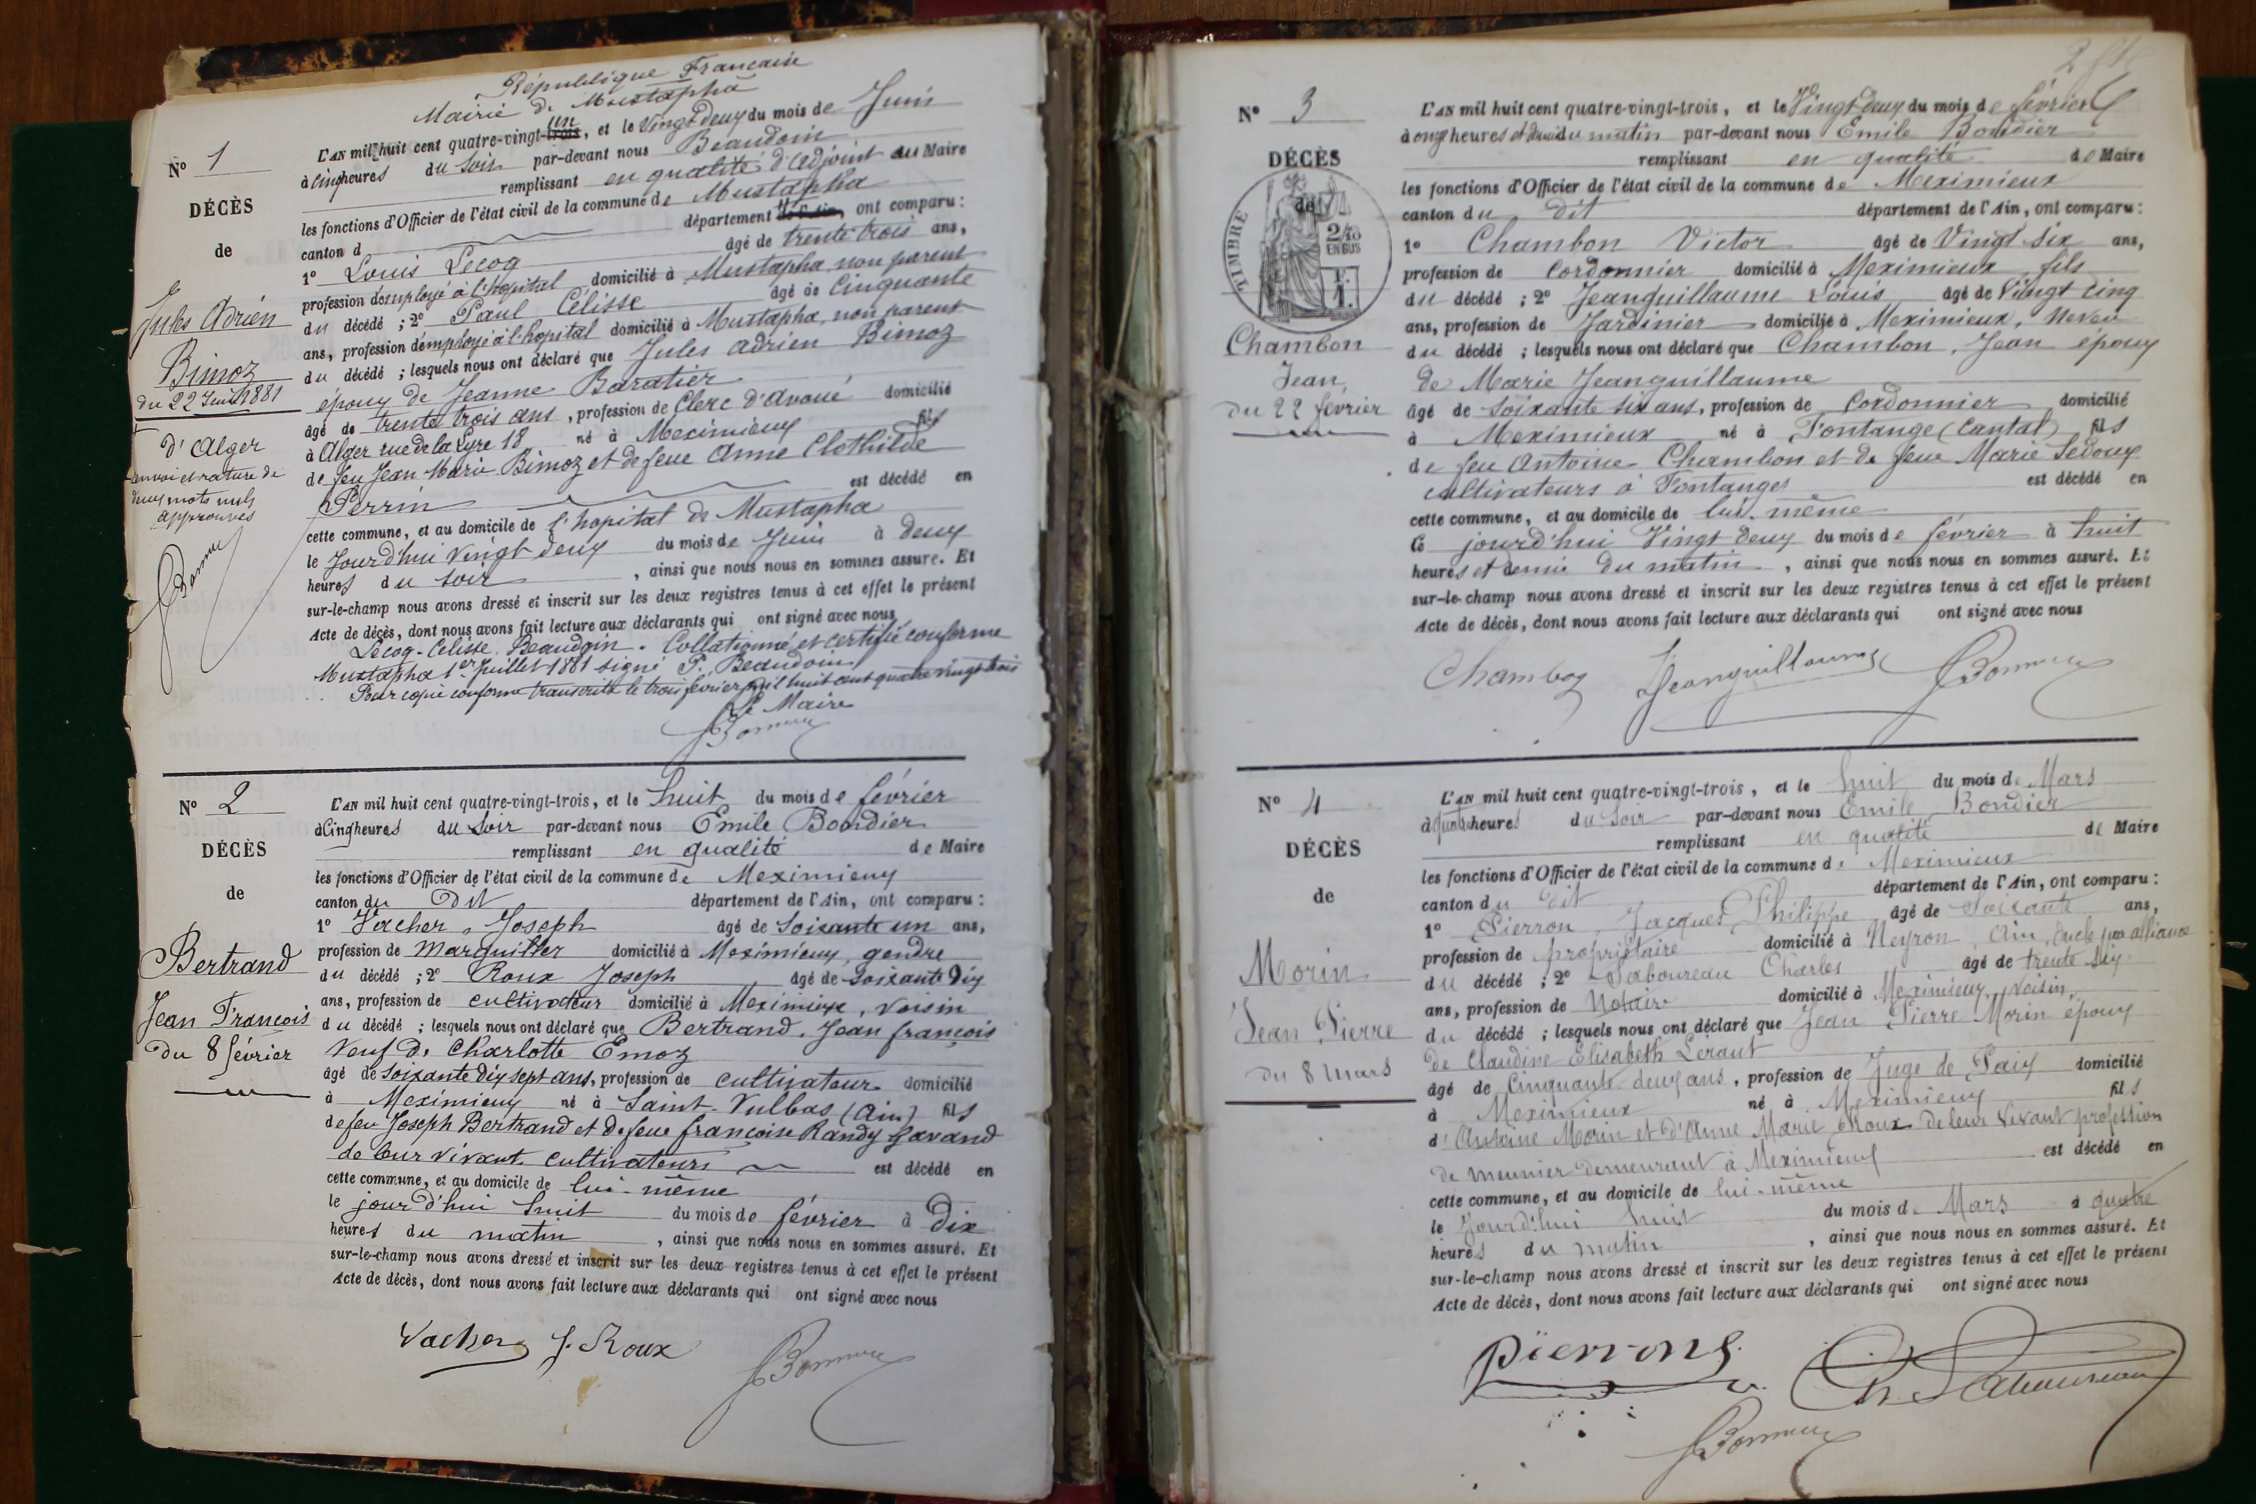 République Française
Mairie de Mustapha
N° 1
DÉCÈS
de
Jules Adrien
Bimoz
du 22 Juin 1881
d'Alger
renvoi et rature de
deux mots nuls
approuvés
L'AN mil huit cent quatre-vingt-trois un, et le Vingt deux du mois de Juin
à cinq heures du soir par-devant nous Beaudoin
remplissant en qualité d'adjoint au Maire
les fonctions d'Officier de l'état civil de la commune de Mustapha
canton d département de l'Ain, ont comparu :
1° Louis Lecoq âgé de trente trois ans,
profession d'employé à l'hopital domicilié à Mustapha, non parent
du décédé ; 2° Paul Célisse âgé de Cinquante
ans, profession d'employé à l'hopital domicilié à Mustapha, non parent
du décédé ; lesquels nous ont déclaré que Jules Adrien Bimoz
époux de Jeanne Baratier
âgé de trente trois ans, profession de Clerc d'Avoué domicilié
à Alger rue de la Lyre 18 né à Meximieux fils
de feu Jean Marie Bimoz et de feue Anne Clothilde
Perrin est décédé en
cette commune, et au domicile de l'hopital de Mustapha
le Jourd'hui Vingt deux du mois de Juin à deux
heures du soir, ainsi que nous nous en sommes assuré. Et
sur-le-champ nous avons dressé et inscrit sur les deux registres tenus à cet effet le présent
Acte de décès, dont nous avons fait lecture aux déclarants qui ont signé avec nous
Lecoq. Celisse. Beaudoin. Collationné et certifié conforme
Mustapha 1er Juillet 1881 signé P. Beaudoin
Pour copie conforme transcrite le trois février mil huit cent quatre vingt trois
Le Maire
N° 2
DÉCÈS
de
Bertrand
Jean François
du 8 février
L'AN mil huit cent quatre-vingt-trois, et le huit du mois de février
à Cinq heures du soir par-devant nous Emile Bondier
remplissant en qualité de Maire
les fonctions d'Officier de l'état civil de la commune de Meximieux
canton du Dit département de l'Ain, ont comparu :
1° Vacher, Joseph âgé de Soixante un ans,
profession de Marguiller domicilié à Meximieux, gendre
du décédé ; 2° Roux Joseph âgé de Soixante Dix
ans, profession de cultivateur domicilié à Meximieux, Voisin
du décédé ; lesquels nous ont déclaré que Bertrand, Jean françois
Veuf de Charlotte Émoz
âgé de Soixante Dix sept ans, profession de cultivateur domicilié
à Meximieux né à Saint-Vulbas (Ain) fils
de feu Joseph Bertrand et de feue françoise Randy Gavand
de leur vivant cultivateurs est décédé en
cette commune, et au domicile de lui-même
le jourd'hui huit du mois de février à dix
heures du matin, ainsi que nous nous en sommes assuré. Et
sur-le-champ nous avons dressé et inscrit sur les deux registres tenus à cet effet le présent
Acte de décès, dont nous avons fait lecture aux déclarants qui ont signé avec nous
Vacher J. Roux
N° 3
DÉCÈS
de
TIMBRE
2/10
EN SUS
Chambon
Jean,
du 22 février
L'AN mil huit cent quatre-vingt-trois, et le Vingt deux du mois de février
à onze heures et demi du matin par-devant nous Emile Bondier
remplissant en qualité de Maire
les fonctions d'Officier de l'état civil de la commune de Meximieux
canton du dit département de l'Ain, ont comparu :
1° Chambon Victor âgé de Vingt Six ans,
profession de Cordonnier domicilié à Meximieux, fils
du décédé ; 2° Jeanguillaume Louis âgé de Vingt Cinq
ans, profession de Jardinier domicilié à Meximieux, Neveu
du décédé ; lesquels nous ont déclaré que Chambon, Jean époux
de Marie Jeanguillaume
âgé de Soixante six ans, profession de Cordonnier domicilié
à Meximieux né à Fontange (Cantal) fils
de feu Antoine Chambon et de feue Marie Ledoux
cultivateurs à Fontanges est décédé en
cette commune, et au domicile de lui-même
Ce jourd'hui Vingt Deux du mois de février à huit
heures et demie du matin, ainsi que nous nous en sommes assuré. Et
sur-le-champ nous avons dressé et inscrit sur les deux registres tenus à cet effet le présent
Acte de décès, dont nous avons fait lecture aux déclarants qui ont signé avec nous
Chambon Jeanguillaume
N° 4
DÉCÈS
de
Morin
Jean Pierre
du 8 Mars
L'AN mil huit cent quatre-vingt-trois, et le huit du mois de Mars
à quatre heures du soir par-devant nous Emile Bondier
remplissant en qualité de Maire
les fonctions d'Officier de l'état civil de la commune de Meximieux
canton du dit département de l'Ain, ont comparu :
1° Pierron, Jacques Philippe âgé de Soixante ans,
profession de propriétaire domicilié à Neyron, Ain, oncle par alliance
du décédé ; 2° Laboureau Charles âgé de trente Six
ans, profession de Notaire domicilié à Meximieux, Voisin,
du décédé ; lesquels nous ont déclaré que Jean Pierre Morin époux
de Claudine Elisabeth Leraut
âgé de Cinquante deux ans, profession de Juge de Paix domicilié
à Meximieux né à Meximieux fils
d'Antoine Morin et d'Anne Marie Moux de leur Vivant profession
de meunier demeurant à Meximieux est décédé en
cette commune, et au domicile de lui-même
le Jourd'hui huit du mois de Mars à quatre
heures du matin, ainsi que nous nous en sommes assuré. Et
sur-le-champ nous avons dressé et inscrit sur les deux registres tenus à cet effet le présent
Acte de décès, dont nous avons fait lecture aux déclarants qui ont signé avec nous
Ch. Laboureau